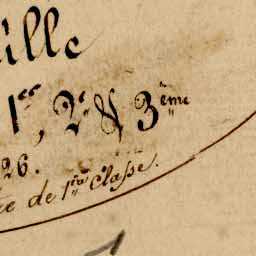 ille
1re, 2e & 3ème
26.
re de 1ère Classe.